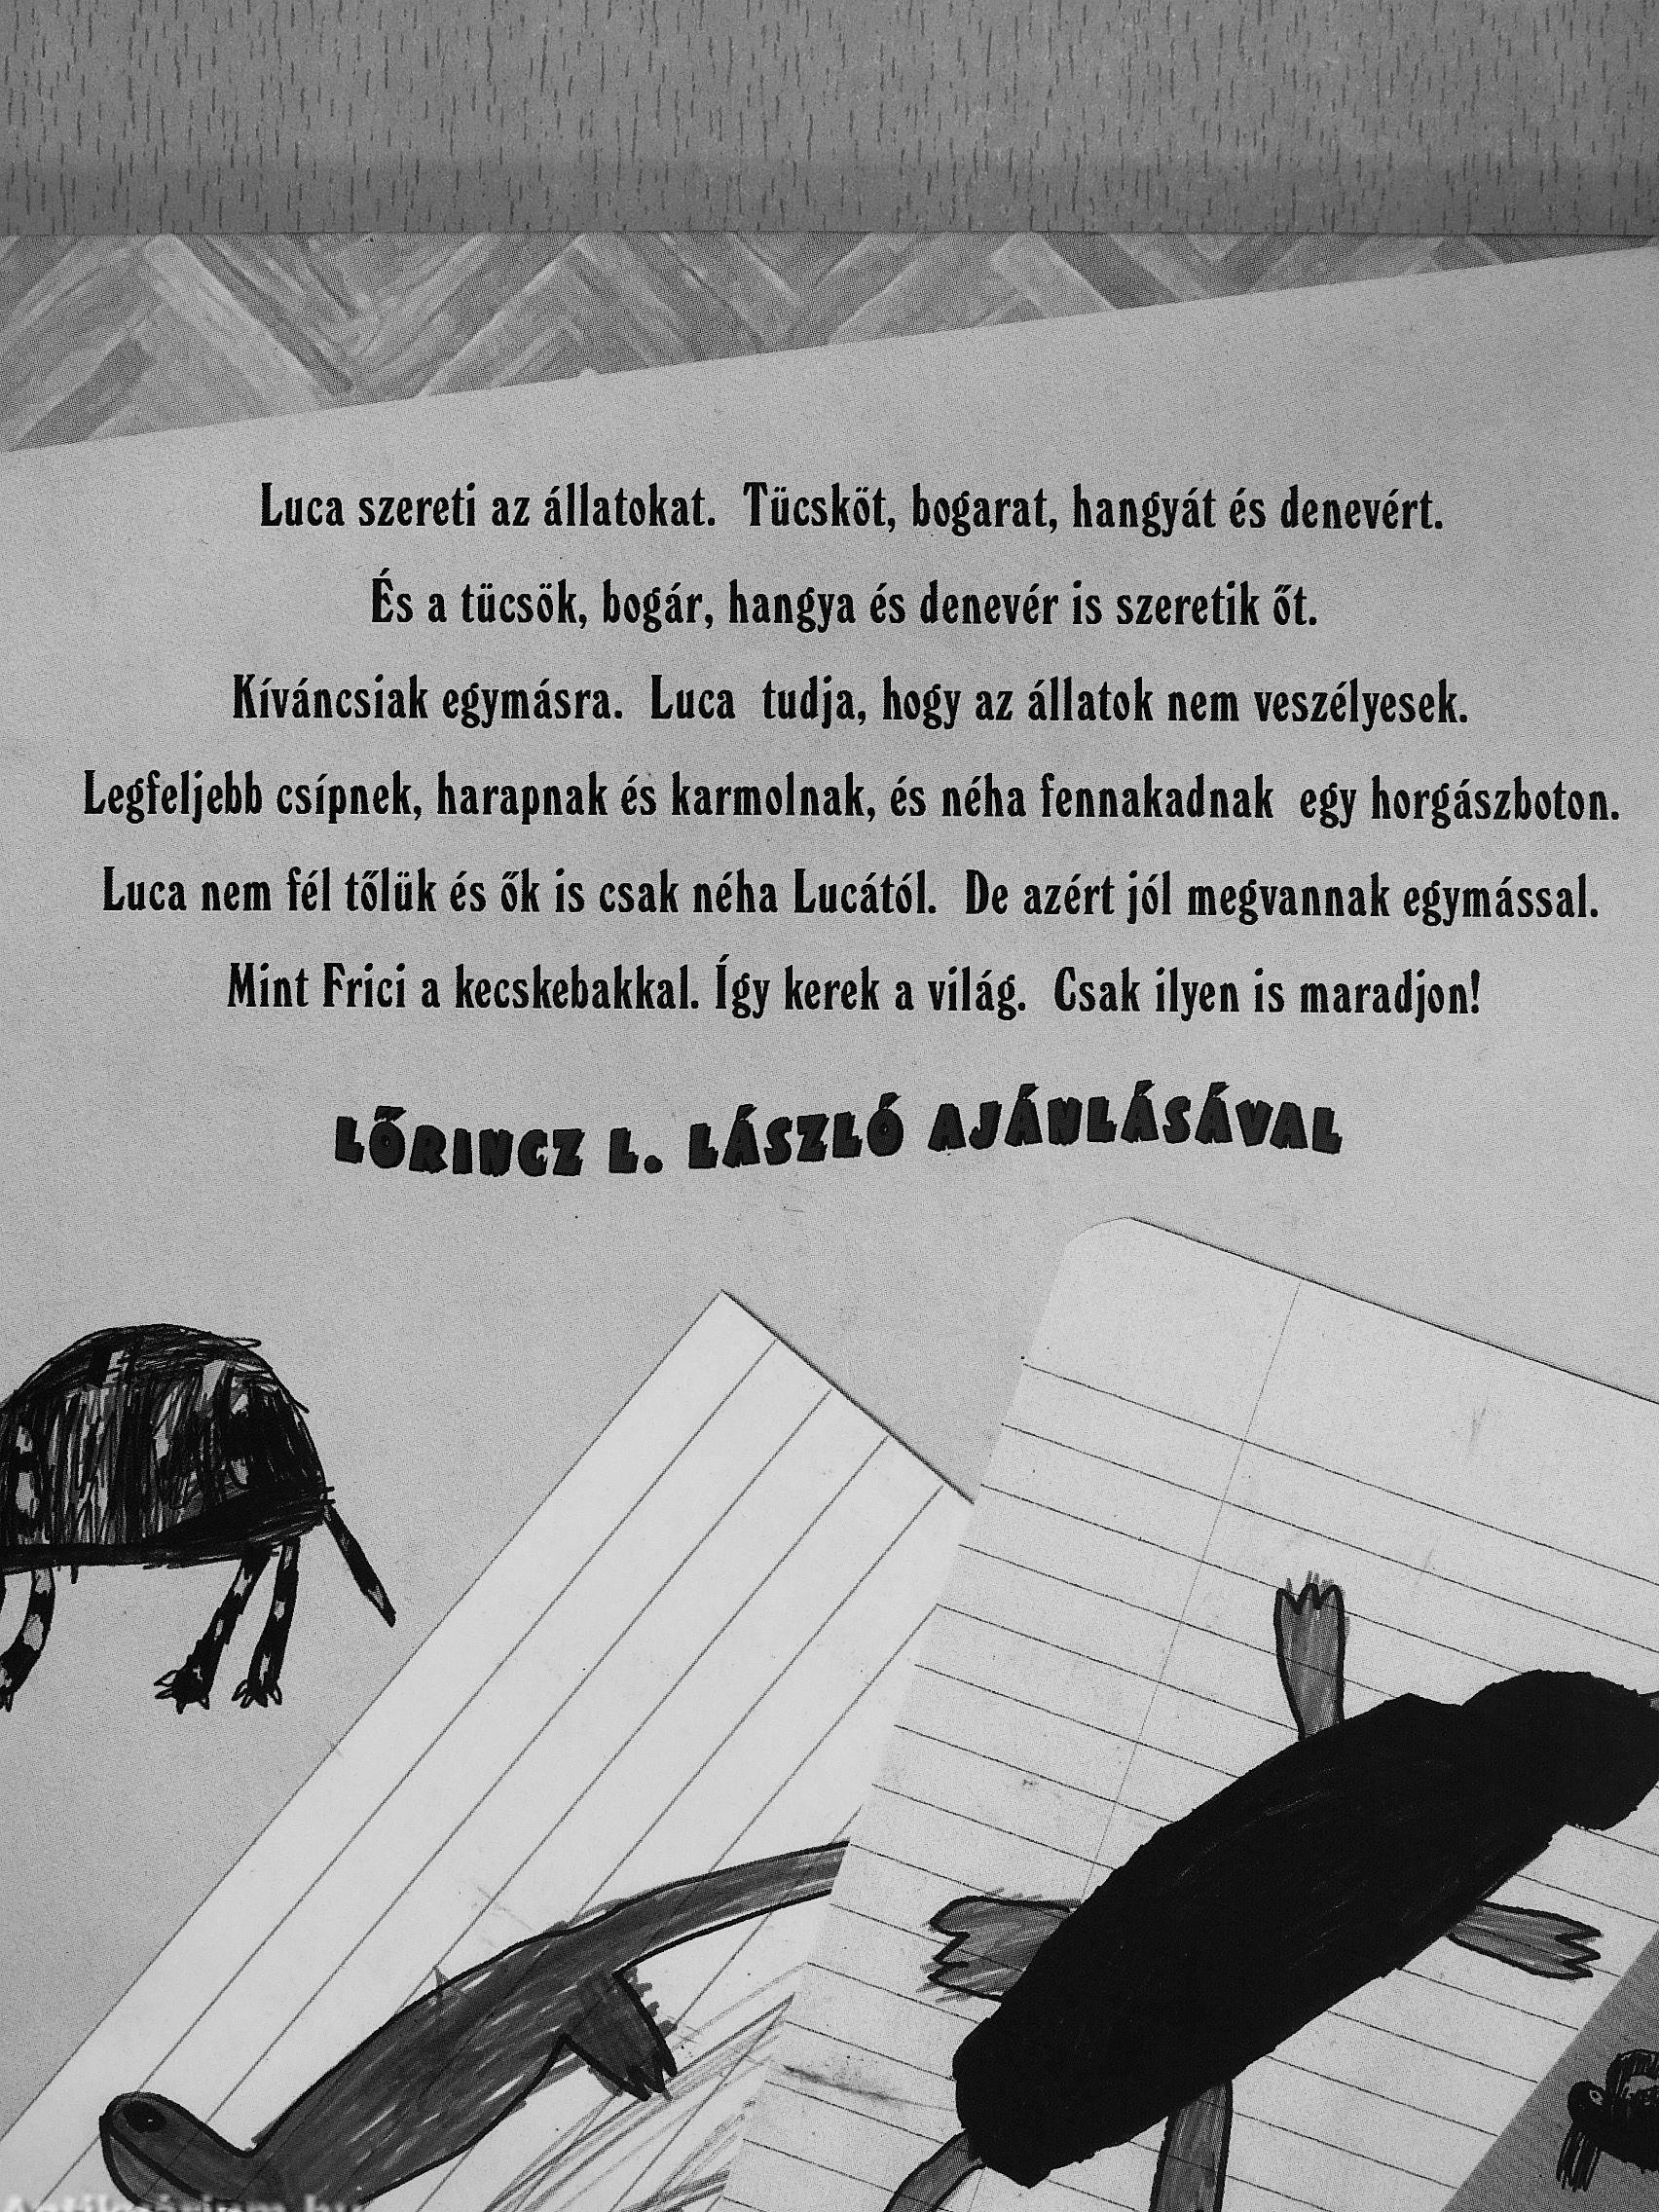 Luca szereti az állatokat. Tücsköt, bogarat, hangyát és denevért.
És a tücsök, bogár, hangya és denevér is szeretik őt.
Kíváncsiak egymásra. Luca tudja, hogy az állatok nem veszélyesek.
Legfeljebb csípnek, harapnak és karmolnak, és néha fennakadnak egy horgászboton.
Luca nem fél tőlük és ők is csak néha Lucától. De azért jól megvannak egymással.
Mint Frici a kecskebakkal. Így kerek a világ. Csak ilyen is maradjon!
LŐRINCZ L. LÁSZLÓ AJÁNLÁSÁVAL